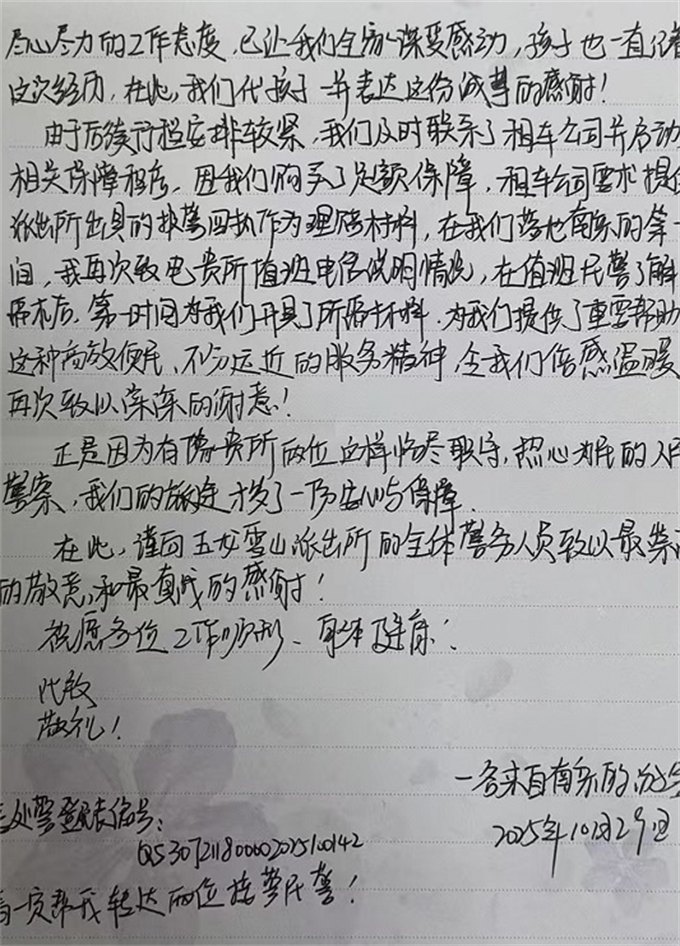 尽心尽力的工作态度，已让我们全家深受感动，孩子也一直记着
这次经历，在此，我们代孩子一并表达这份诚挚的感谢！
由于后续行程安排较紧，我们及时联系了租车公司并启动
相关保障程序，因我们购买了足额保障，租车公司要求提供
派出所出具的报警回执作为理赔材料，在我们落地南京的第一
间，我再次致电贵所值班电话说明情况，在值班民警了解
需求后，第一时间为我们开具了所需材料，为我们提供了重要帮助
这种高效便民、不分远近的服务精神，令我们倍感温暖
再次致以深深的谢意！
正是因为有像贵所两位这样恪尽职守，热心为民的人民
警察，我们的旅途才多了一份安心与保障．
在此，谨向玉龙雪山派出所的全体警务人员致以最崇高
的敬意和最真诚的感谢！
祝愿各位工作顺利、身体健康！
此致
敬礼！
一名来自南京的
2025年10月29日
处警登记表编号：
QS307211800002025100142
请一定帮我转达两位接警民警！